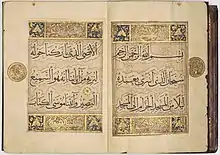 بسم الله الرحمن الرحيم
سبحان الذي اسرى بعبده
ليلا من المسجد الحرام الى المسجد
الاقصى الذي باركنا حوله
لنريه من اياتنا انه هو السميع
البصير واتينا موسى الكتاب